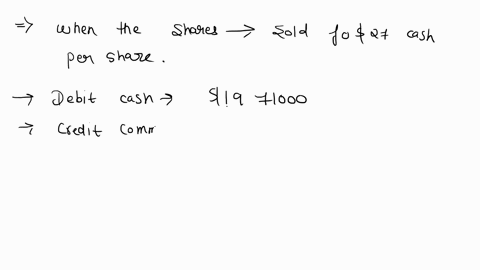 ⇒ when the shares → Sold fo $27 cash
per share.
→ Debit cash → $19 71000
→ Credit comm